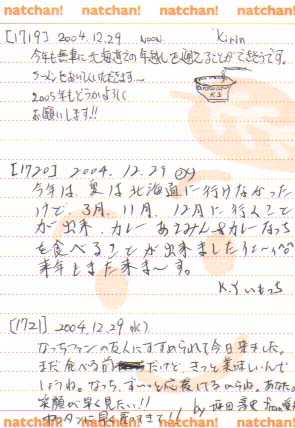 natchan! natchan! natchan! natchan!
[1719] 2004.12.29 NOON Kirin
今年も無事に北海道での年越しを過ごすことができそうです。
ラーメンをおいしくいただきます。
2005年もどうかよろしく
お願いします!!
[1720] 2004.12.29
今年は、夏は北海道に行けなかった
けど、3月、11月、12月に行くこと
が出来、カレーあみあみ&カレーなっち
を食べることが出来ましたりょ〜(^o^)
来年もまた来ま〜す。
K.Y いもっち
[1721] 2004.12.29(水)
なっちファンの友人にすすめられて今日来ました。
まだ食べる前だけど、きっと美味しいんで
しょうね。なっち、ずーっと応援してるからね。あなたの
笑顔が早く見たい!!
natchan! natchan! natchan! natchan!